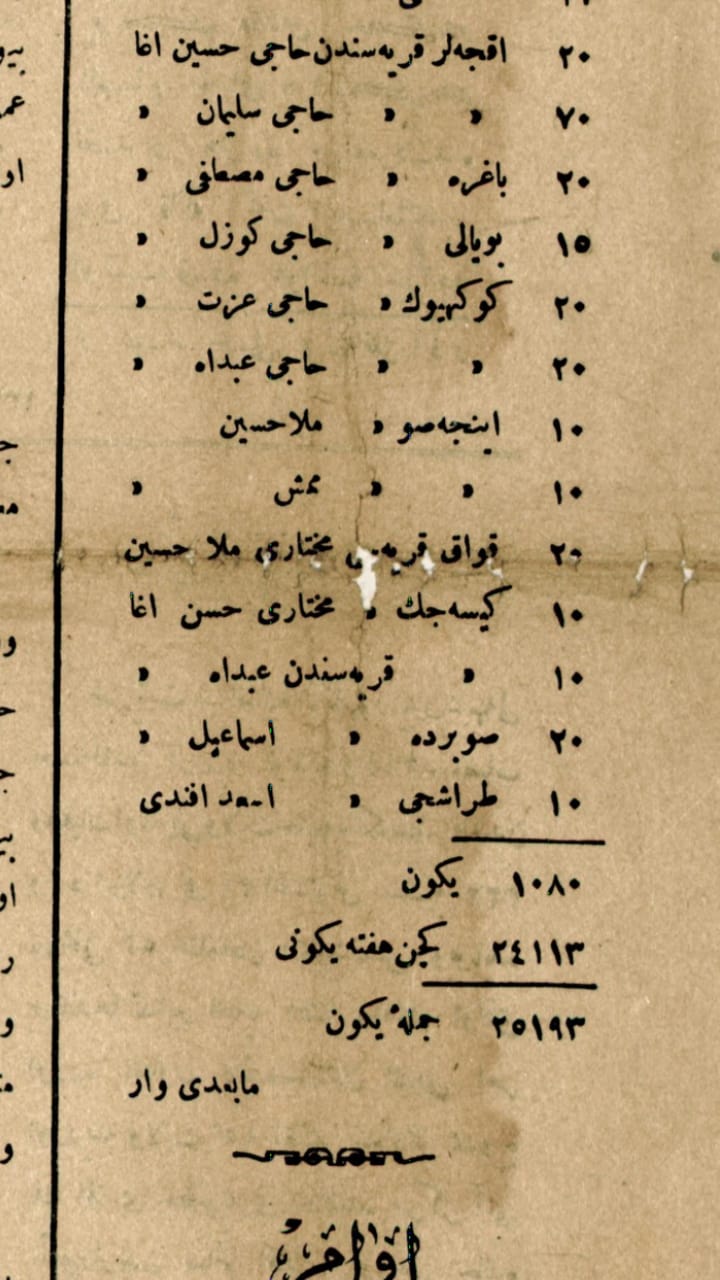 ٢٠ اقچه‌لر قریه‌سندن حاجی حسین اغا
٧٠ » » حاجی سلیمان »
٢٠ باغره » حاجی مصطفی »
١٥ بویالی » حاجی کوزل »
٢٠ کوکهیوك » حاجی عزت »
٢٠ » » حاجی عبداه »
١٠ اینجه‌صو » ملاحسین
١٠ » » ممش »
٢٠ قواق قریه‌سی مختاری ملا حسین
١٠ کیسه‌جك » مختاری حسن اغا
١٠ » قریه‌سندن عبداه »
٢٠ صوبرده » اسماعیل »
١٠ طراشجی » اسعد افندی
١٠٨٠ یکون
٢٤١١٣ کچن هفته یکونی
٢٥١٩٣ جملهٔ یکون
مابعدی وار